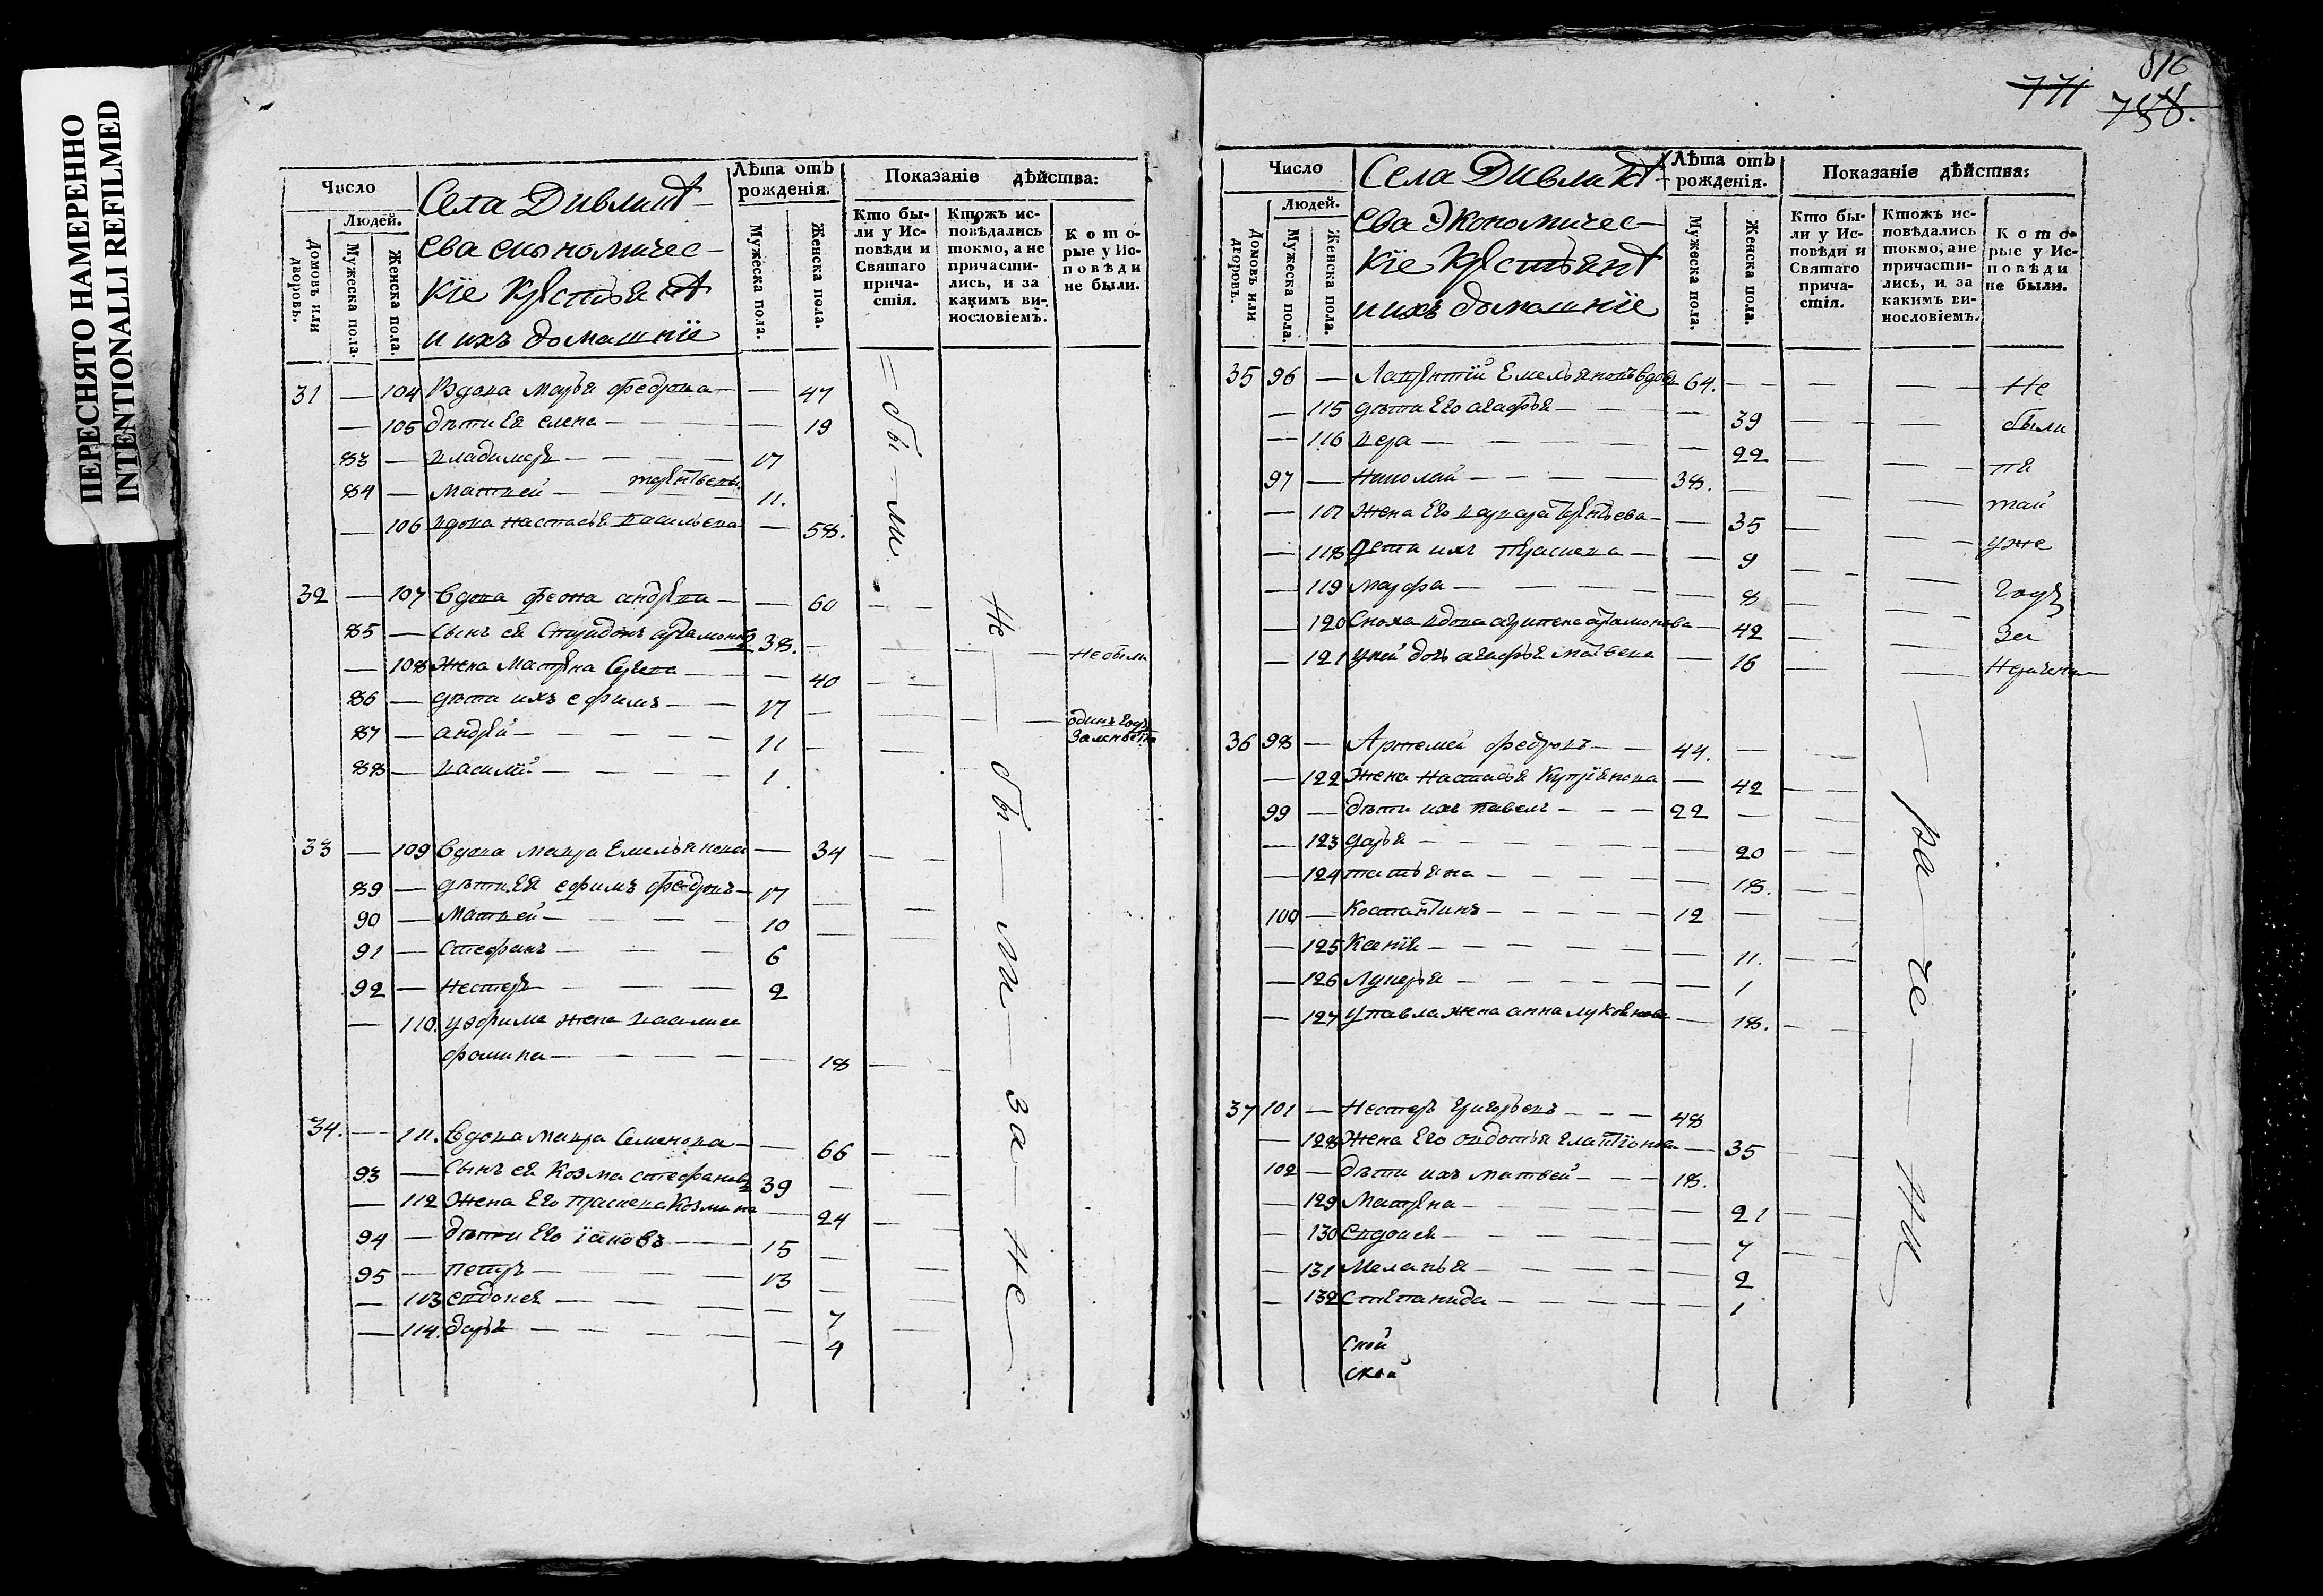 ПЕРЕСНЯТО НАМЕРЕННО
INTENTIONALLI REFILMED
816
771
758.
Число
Людей.
Домовъ или дворовъ.
Мужеска пола.
Женска пола.
Села Дивлит
ева економичес-
кїе крестьяня
и ихъ домашнїе
Лѣта отъ рожденія.
Мужеска пола.
Женска пола.
Показаніе дѣйства:
Кто были у Исповѣди и Святаго причастія.
Ктожъ исповѣдались токмо, а не причастились, и за какимъ винословіемъ.
Которые у Исповѣди не были.
31 — 104 Вдова марья федрова — — 47
— 105 дѣти Ея елена — — 19
83 — владимеръ — 17
84 — матвей — терентьевы. 11.
— 106 вдова настасья васильева — 58.
= бы — ли
32 — 107 вдова феона андрева — — 60
85 — сынъ ея Спиридонъ артамоновъ 38. — не были
— 108 жена Матрена — 40
86 — дѣти ихъ ефимъ — 17
одинъ годъ
87 — андрей — 11
88 — василїй — 1.
33 — 109 вдова мавра Емельянова — 34
89 — дѣти Ея ефимъ федровъ — 17
90 — Матвей — 10
91 — стефанъ — 6
92 — нестеръ — 2
— 110. уефима жена василиса
фомина — — 18
34. — 111. вдова мавра Семенова — — 66
93 — Сынъ ея Козма стефановъ 39
— 112 Жена Его праскева Козмина — 24
94 — дѣти Его їаковъ — 15
95 — петръ — 13
— 113 евдокея — 7
— 114. дарья — 4
не — бы — ли — за — не
Число
Людей.
Домовъ или дворовъ.
Мужеска пола.
Женска пола.
Села Дивлит
ева Экономичес-
кїе крестьяня
и ихъ домашнїе
Лѣта отъ рожденія.
Мужеска пола.
Женска пола.
Показаніе дѣйства:
Кто были у Исповѣди и Святаго причастія.
Ктожъ исповѣдались токмо, а не причастились, и за какимъ винословіемъ.
Которые у Исповѣди не были.
35 96 — Лаврентїй Емельяновъ вдовъ 64. — Не
— 115 дѣти Его агафья — 39 были
— 116 вера — 22 пя
97 — Николай — 38. тай
— 117 жена Его варвара терентьева — 35 уже
— 118 дети ихъ праскева — 9
— 119 марфа — 8 годъ
— 120 Сноха вдова агрипена артамонова — 42 за
— 121 уней дочь агафья матвева — 16
36 98 — Артемей федровъ — 44.
— 122 жена настасья Купрїянова — 42
99 — дѣти ихъ павелъ — 22
— 123 дарья — 20
— 124 татьяна — 18.
100 — Костантинъ — 12
— 125 Ксенїя — 11.
— 126 Лукерья — 1
— 127 упавла жена анна — 18.
37 101 — нестеръ григорьевъ — 48
— 128 Жена Его авдотья — 35
102 — дѣти ихъ матвей — 18.
— 129 Матрена — 21
— 130 Евдокея — 7
— 131 Меланья — 2
— 132 степанида — 1
— ра — че — ни